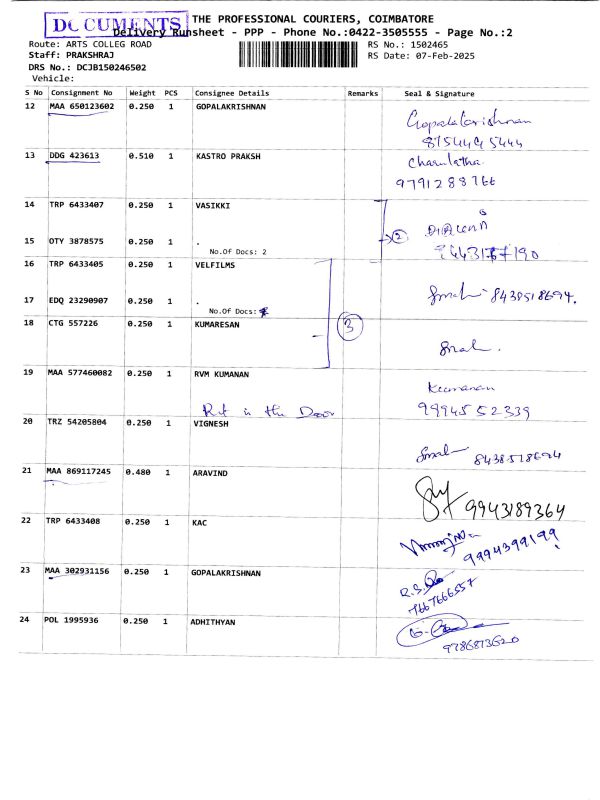 DOCUMENTS
THE PROFESSIONAL COURIERS, COIMBATORE
Delivery Runsheet - PPP - Phone No.:0422-3505555 - Page No.:2
Route: ARTS COLLEG ROAD
RS No.: 1502465
Staff: PRAKSHRAJ
RS Date: 07-Feb-2025
DRS No.: DCJB150246502
Vehicle:
S No Consignment No Weight PCS Consignee Details Remarks Seal & Signature
12 MAA 650123602 0.250 1 GOPALAKRISHNAN
Gopalakrishnan
13 DDG 423613 0.510 1 KASTRO PRAKSH
Charulatha
14 TRP 6433407 0.250 1 VASIKKI
15 OTY 3878575 0.250 1 .
2
No.Of Docs: 2
16 TRP 6433405 0.250 1 VELFILMS
17 EDQ 23290907 0.250 1 .
8438518694.
No.Of Docs:
18 CTG 557226 0.250 1 KUMARESAN
3
19 MAA 577460082 0.250 1 RVM KUMANAN
Kumanan
in the Door
9994552339
20 TRZ 54205804 0.250 1 VIGNESH
8438518694
21 MAA 869117245 0.480 1 ARAVIND
9943189364
22 TRP 6433408 0.250 1 KAC
9994399199
23 MAA 302931156 0.250 1 GOPALAKRISHNAN
7667666557
24 POL 1995936 0.250 1 ADHITHYAN
9786873620